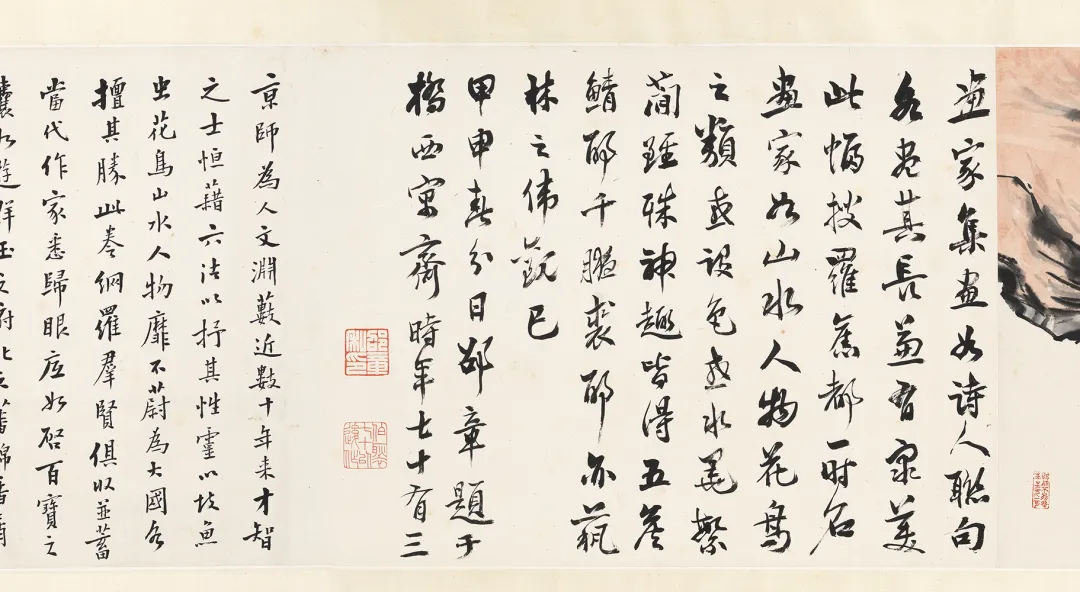 畫家集畫如诗人聯句
各尽其長兼有衆美
此幅搜羅舊都一时名
畫家如山水人物花鳥
之類或設色或水墨繁
簡雖殊神趣皆得五侯
鯖耶千腋裘耶亦藝
林之伟觀已
甲申春分日邵章題于
橋西寓齋時年七十有三
京師為人文淵藪近數十年来才智
之士恒藉六法以抒其性靈以故魚
虫花鳥山水人物靡不蔚為大國各
擅其勝此卷網羅羣賢俱収並蓄
當代作家悉歸眼底如啓百寶之
囊如遊群玉之府